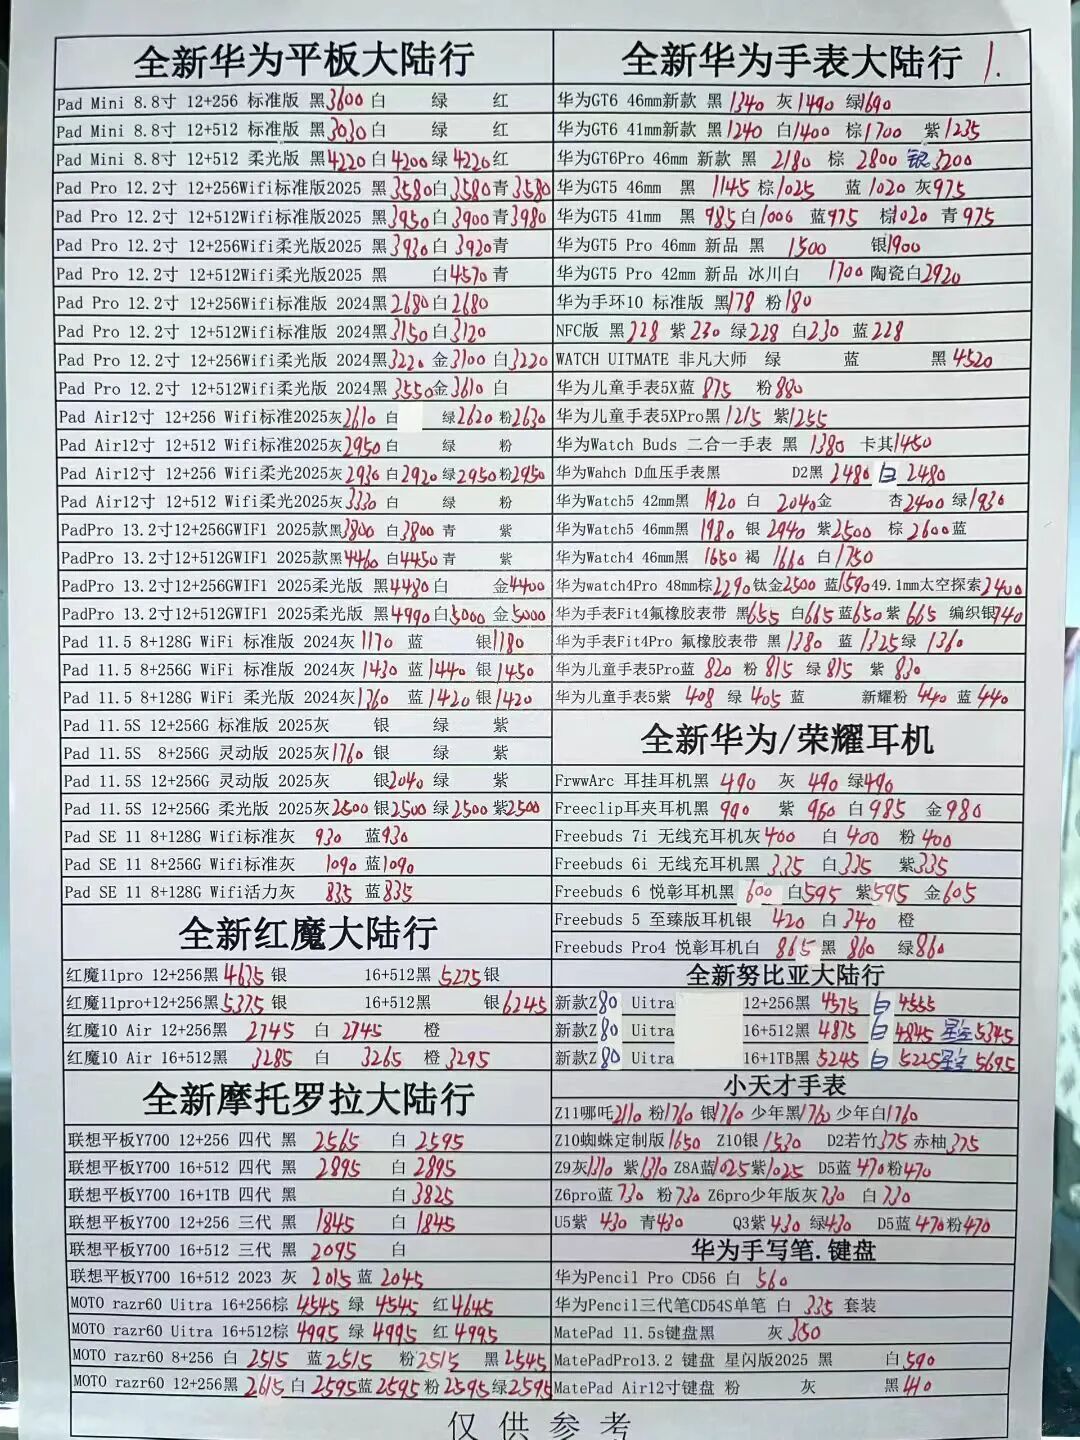 全新华为平板大陆行
Pad Mini 8.8寸 12+256 标准版 黑3600 白 绿 红
Pad Mini 8.8寸 12+512 标准版 黑3030 白 绿 红
Pad Mini 8.8寸 12+512 柔光版 黑4220 白4200 绿4220 红
Pad Pro 12.2寸 12+256Wifi标准版2025 黑3580 白3580 青3580
Pad Pro 12.2寸 12+512Wifi标准版2025 黑3950 白3900 青3980
Pad Pro 12.2寸 12+256Wifi柔光版2025 黑3930 白3920 青
Pad Pro 12.2寸 12+512Wifi柔光版2025 黑 白4570 青
Pad Pro 12.2寸 12+256Wifi标准版 2024黑2680 白2680
Pad Pro 12.2寸 12+512Wifi标准版 2024黑3150 白3120
Pad Pro 12.2寸 12+256Wifi柔光版 2024黑3220 金3100 白3220
Pad Pro 12.2寸 12+512Wifi柔光版 2024黑3550 金3610 白
Pad Air12寸 12+256 Wifi标准2025灰2610 白 绿2620 粉2630
Pad Air12寸 12+512 Wifi标准2025灰2950 白 绿 粉
Pad Air12寸 12+256 Wifi柔光2025灰2930 白2920 绿2950 粉2950
Pad Air12寸 12+512 Wifi柔光2025灰3330 白 绿 粉
PadPro 13.2寸12+256GWIF1 2025款黑3800 白3800 青 紫
PadPro 13.2寸12+512GWIF1 2025款黑4460 白4450 青 紫
PadPro 13.2寸12+256GWIF1 2025柔光版 黑4480 白 金4400
PadPro 13.2寸12+512GWIF1 2025柔光版 黑4990 白5000 金5000
Pad 11.5 8+128G WiFi 标准版 2024灰1170 蓝 银1180
Pad 11.5 8+256G WiFi 标准版 2024灰1430 蓝1440 银1450
Pad 11.5 8+128G WiFi 柔光版 2024灰1360 蓝1420 银1420
Pad 11.5S 12+256G 标准版 2025灰 银 绿 紫
Pad 11.5S 8+256G 灵动版 2025灰1760 银 绿 紫
Pad 11.5S 12+256G 灵动版 2025灰 银2040 绿 紫
Pad 11.5S 12+256G 柔光版 2025灰2500 银2500 绿2500 紫2500
Pad SE 11 8+128G Wifi标准灰 930 蓝930
Pad SE 11 8+256G Wifi标准灰 1090 蓝1090
Pad SE 11 8+128G Wifi活力灰 835 蓝835
全新红魔大陆行
红魔11pro 12+256黑4635 银 16+512黑5275 银
红魔11pro+12+256黑5375 银 16+512黑 银6245
红魔10 Air 12+256黑 2745 白 2745 橙
红魔10 Air 16+512黑 3285 白 3265 橙3295
全新摩托罗拉大陆行
联想平板Y700 12+256 四代 黑 2565 白 2595
联想平板Y700 16+512 四代 黑 2895 白 2895
联想平板Y700 16+1TB 四代 黑 白3825
联想平板Y700 12+256 三代 黑 1845 白 1845
联想平板Y700 16+512 三代 黑 2095 白
联想平板Y700 16+512 2023 灰 2015 蓝 2045
MOTO razr60 Uitra 16+256棕 4545 绿 4545 红4645
MOTO razr60 Uitra 16+512棕 4995 绿 4995 红 4995
MOTO razr60 8+256 白 2515 蓝2515 粉2515 黑2545
MOTO razr60 12+256黑 2615 白 2595 蓝2595 粉2595 绿2595
全新华为手表大陆行 1.
华为GT6 46mm新款 黑 1340 灰1490 绿1690
华为GT6 41mm新款 黑1240 白1400 棕1700 紫1235
华为GT6Pro 46mm 新款 黑 2180 棕 2800 银3200
华为GT5 46mm 黑 1145 棕1025 蓝1020 灰975
华为GT5 41mm 黑985 白1006 蓝975 棕1020 青975
华为GT5 Pro 46mm 新品 黑 1500 银1900
华为GT5 Pro 42mm 新品 冰川白 1700 陶瓷白2920
华为手环10 标准版 黑178 粉180
NFC版 黑228 紫230 绿228 白230 蓝228
WATCH UITMATE 非凡大师 绿 蓝 黑4520
华为儿童手表5X蓝 875 粉880
华为儿童手表5XPro黑1215 紫1255
华为Watch Buds 二合一手表 黑 1380 卡其1450
华为Wahch D血压手表黑 D2黑 2480 白 2480
华为Watch5 42mm黑 1920 白 2040 金 杏2400 绿1930
华为Watch5 46mm黑 1980 银 2440 紫2500 棕 2600 蓝
华为Watch4 46mm黑 1650 褐 1660 白1750
华为watch4Pro 48mm棕2290 钛金2500 蓝1590 49.1mm太空探索2400
华为手表Fit4氟橡胶表带 黑655 白665 蓝650 紫 665 编织银740
华为手表Fit4Pro 氟橡胶表带 黑1380 蓝 1325 绿 1360
华为儿童手表5Pro蓝 820 粉 815 绿 815 紫 830
华为儿童手表5紫 408 绿 405 蓝 新耀粉 440 蓝 440
全新华为/荣耀耳机
FrwwArc 耳挂耳机黑 490 灰 490 绿490
Freeclip耳夹耳机黑 990 紫 960 白985 金980
Freebuds 7i 无线充耳机灰400 白 400 粉400
Freebuds 6i 无线充耳机黑 335 白335 紫335
Freebuds 6 悦彰耳机黑 600 白595 紫595 金605
Freebuds 5 至臻版耳机银 420 白340 橙
Freebuds Pro4 悦彰耳机白 865 黑 860 绿860
全新努比亚大陆行
新款Z80 Uitra 12+256黑 4575 白 4555
新款Z80 Uitra 16+512黑 4875 白 4845 星空5345
新款Z80 Uitra 16+1TB黑 5245 白 5225 星空5695
小天才手表
Z11哪吒2110 粉1760 银1760 少年黑1760 少年白1760
Z10蜘蛛定制版1650 Z10银1530 D2若竹375 赤柚375
Z9灰1310 紫1310 Z8A蓝1025 紫1025 D5蓝470 粉470
Z6pro蓝730 粉730 Z6pro少年版灰730 白730
U5紫 430 青430 Q3紫430 绿430 D5蓝470 粉470
华为手写笔.键盘
华为Pencil Pro CD56 白 560
华为Pencil三代笔CD54S单笔 白 335 套装
MatePad 11.5s键盘黑 灰350
MatePadPro13.2 键盘 星闪版2025 黑 白590
MatePad Air12寸键盘 粉 灰 黑410
仅供参考